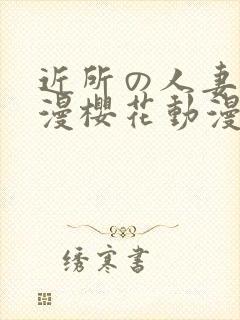 近所の人妻
漫櫻花動漫
绣寒書